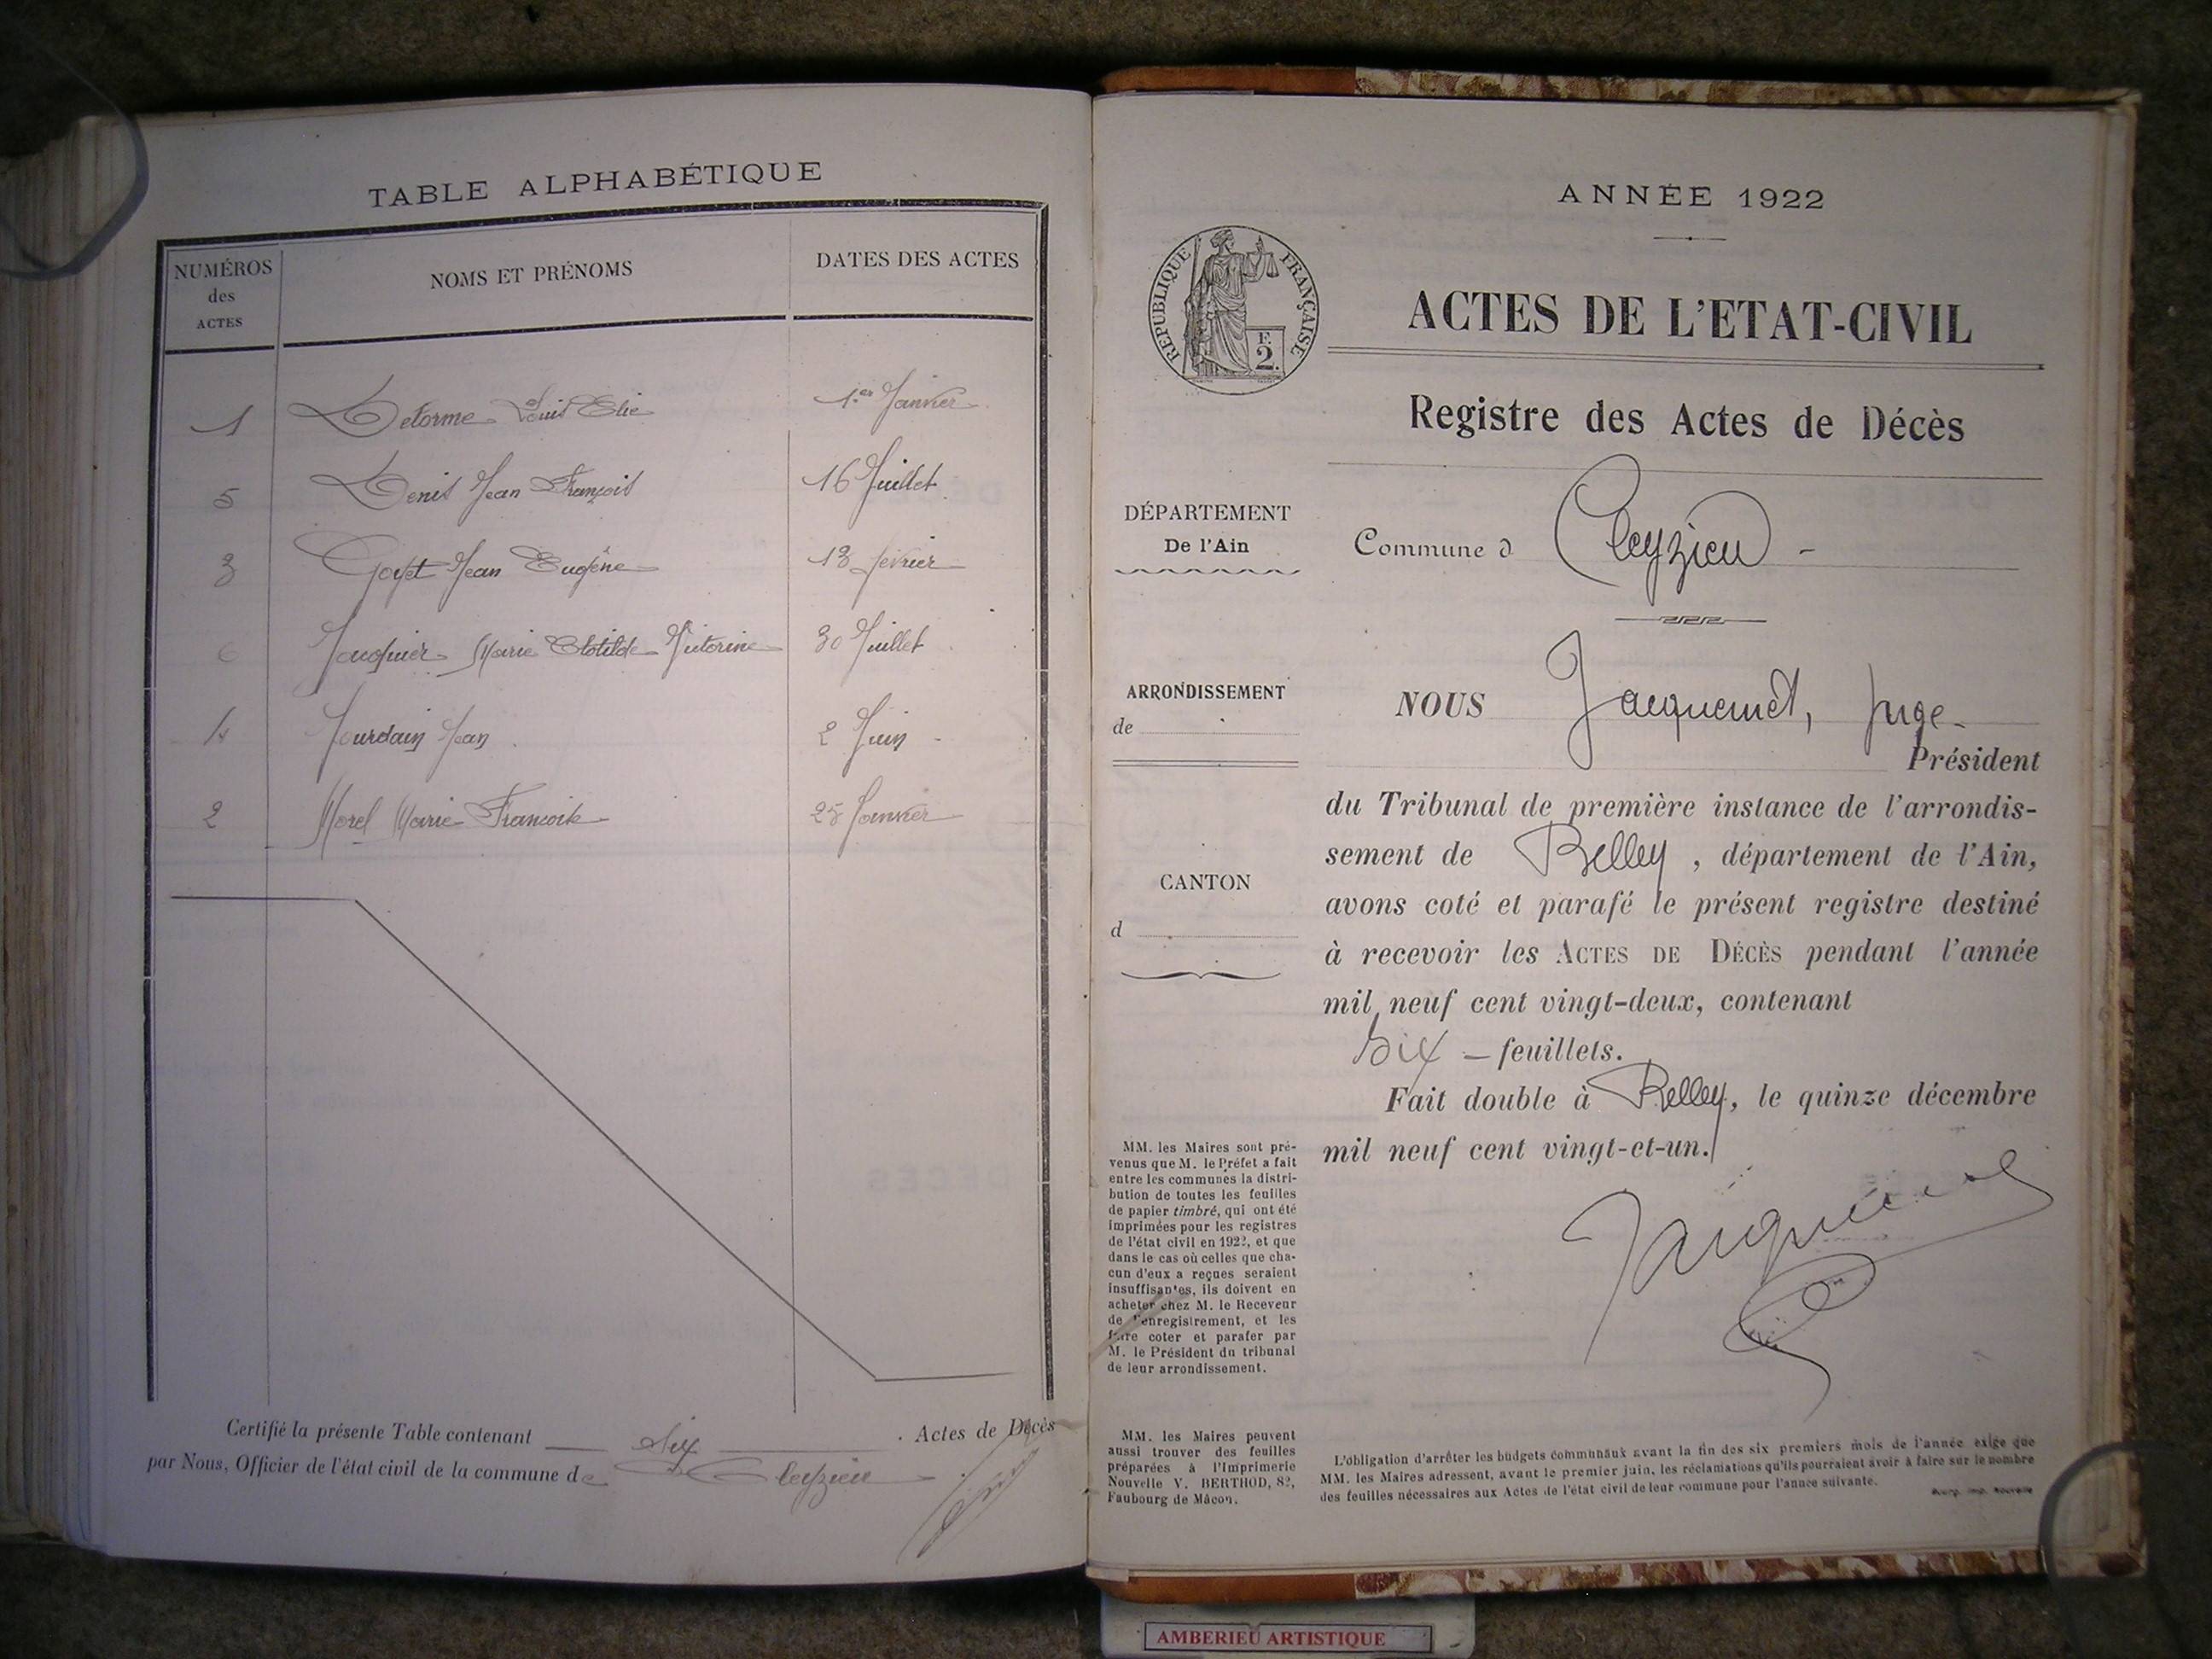 TABLE ALPHABÉTIQUE
NUMÉROS des ACTES
NOMS ET PRÉNOMS
DATES DES ACTES
1 Delorme Louis Elie 1er Janvier
5 Denis Jean François 16 Juillet
3 Goyet Jean Eugène 13 février
6 Marie Clotilde Victorine 30 Juillet
4 Jourdain Jean 2 Juin
2 Morel Marie Françoise 25 Janvier
Certifié la présente Table contenant Six . Actes de Décès
par Nous, Officier de l'état civil de la commune de Cleyzieu
ANNÉE 1922
RÉPUBLIQUE FRANÇAISE
F.
2.
ACTES DE L'ETAT-CIVIL
Registre des Actes de Décès
DÉPARTEMENT
De l'Ain
Commune d Cleyzieu -
ARRONDISSEMENT
de
NOUS Jacquemet, juge-
Président
du Tribunal de première instance de l'arrondis-
sement de Belley , département de l'Ain,
CANTON
d
avons coté et parafé le présent registre destiné
à recevoir les ACTES DE DÉCÈS pendant l'année
mil neuf cent vingt-deux, contenant
Six – feuillets.
Fait double à Belley, le quinze décembre
mil neuf cent vingt-et-un.
MM. les Maires sont pré-
venus que M. le Préfet a fait
entre les communes la distri-
bution de toutes les feuilles
de papier timbré, qui ont été
imprimées pour les registres
de l'état civil en 1922, et que
dans le cas où celles que cha-
cun d'eux a reçues seraient
insuffisantes, ils doivent en
acheter chez M. le Receveur
de l'enregistrement, et les
faire coter et parafer par
M. le Président du tribunal
de leur arrondissement.
MM. les Maires peuvent
aussi trouver des feuilles
préparées à l'Imprimerie
Nouvelle V. BERTHOD, 82,
Faubourg de Mâcon.
L'obligation d'arrêter les budgets communaux avant la fin des six premiers mois de l'année exige que
MM. les Maires adressent, avant le premier juin, les réclamations qu'ils pourraient avoir à faire sur le nombre
des feuilles nécessaires aux Actes de l'état civil de leur commune pour l'année suivante.
Bourg. imp. Nouvelle
AMBERIEU ARTISTIQUE